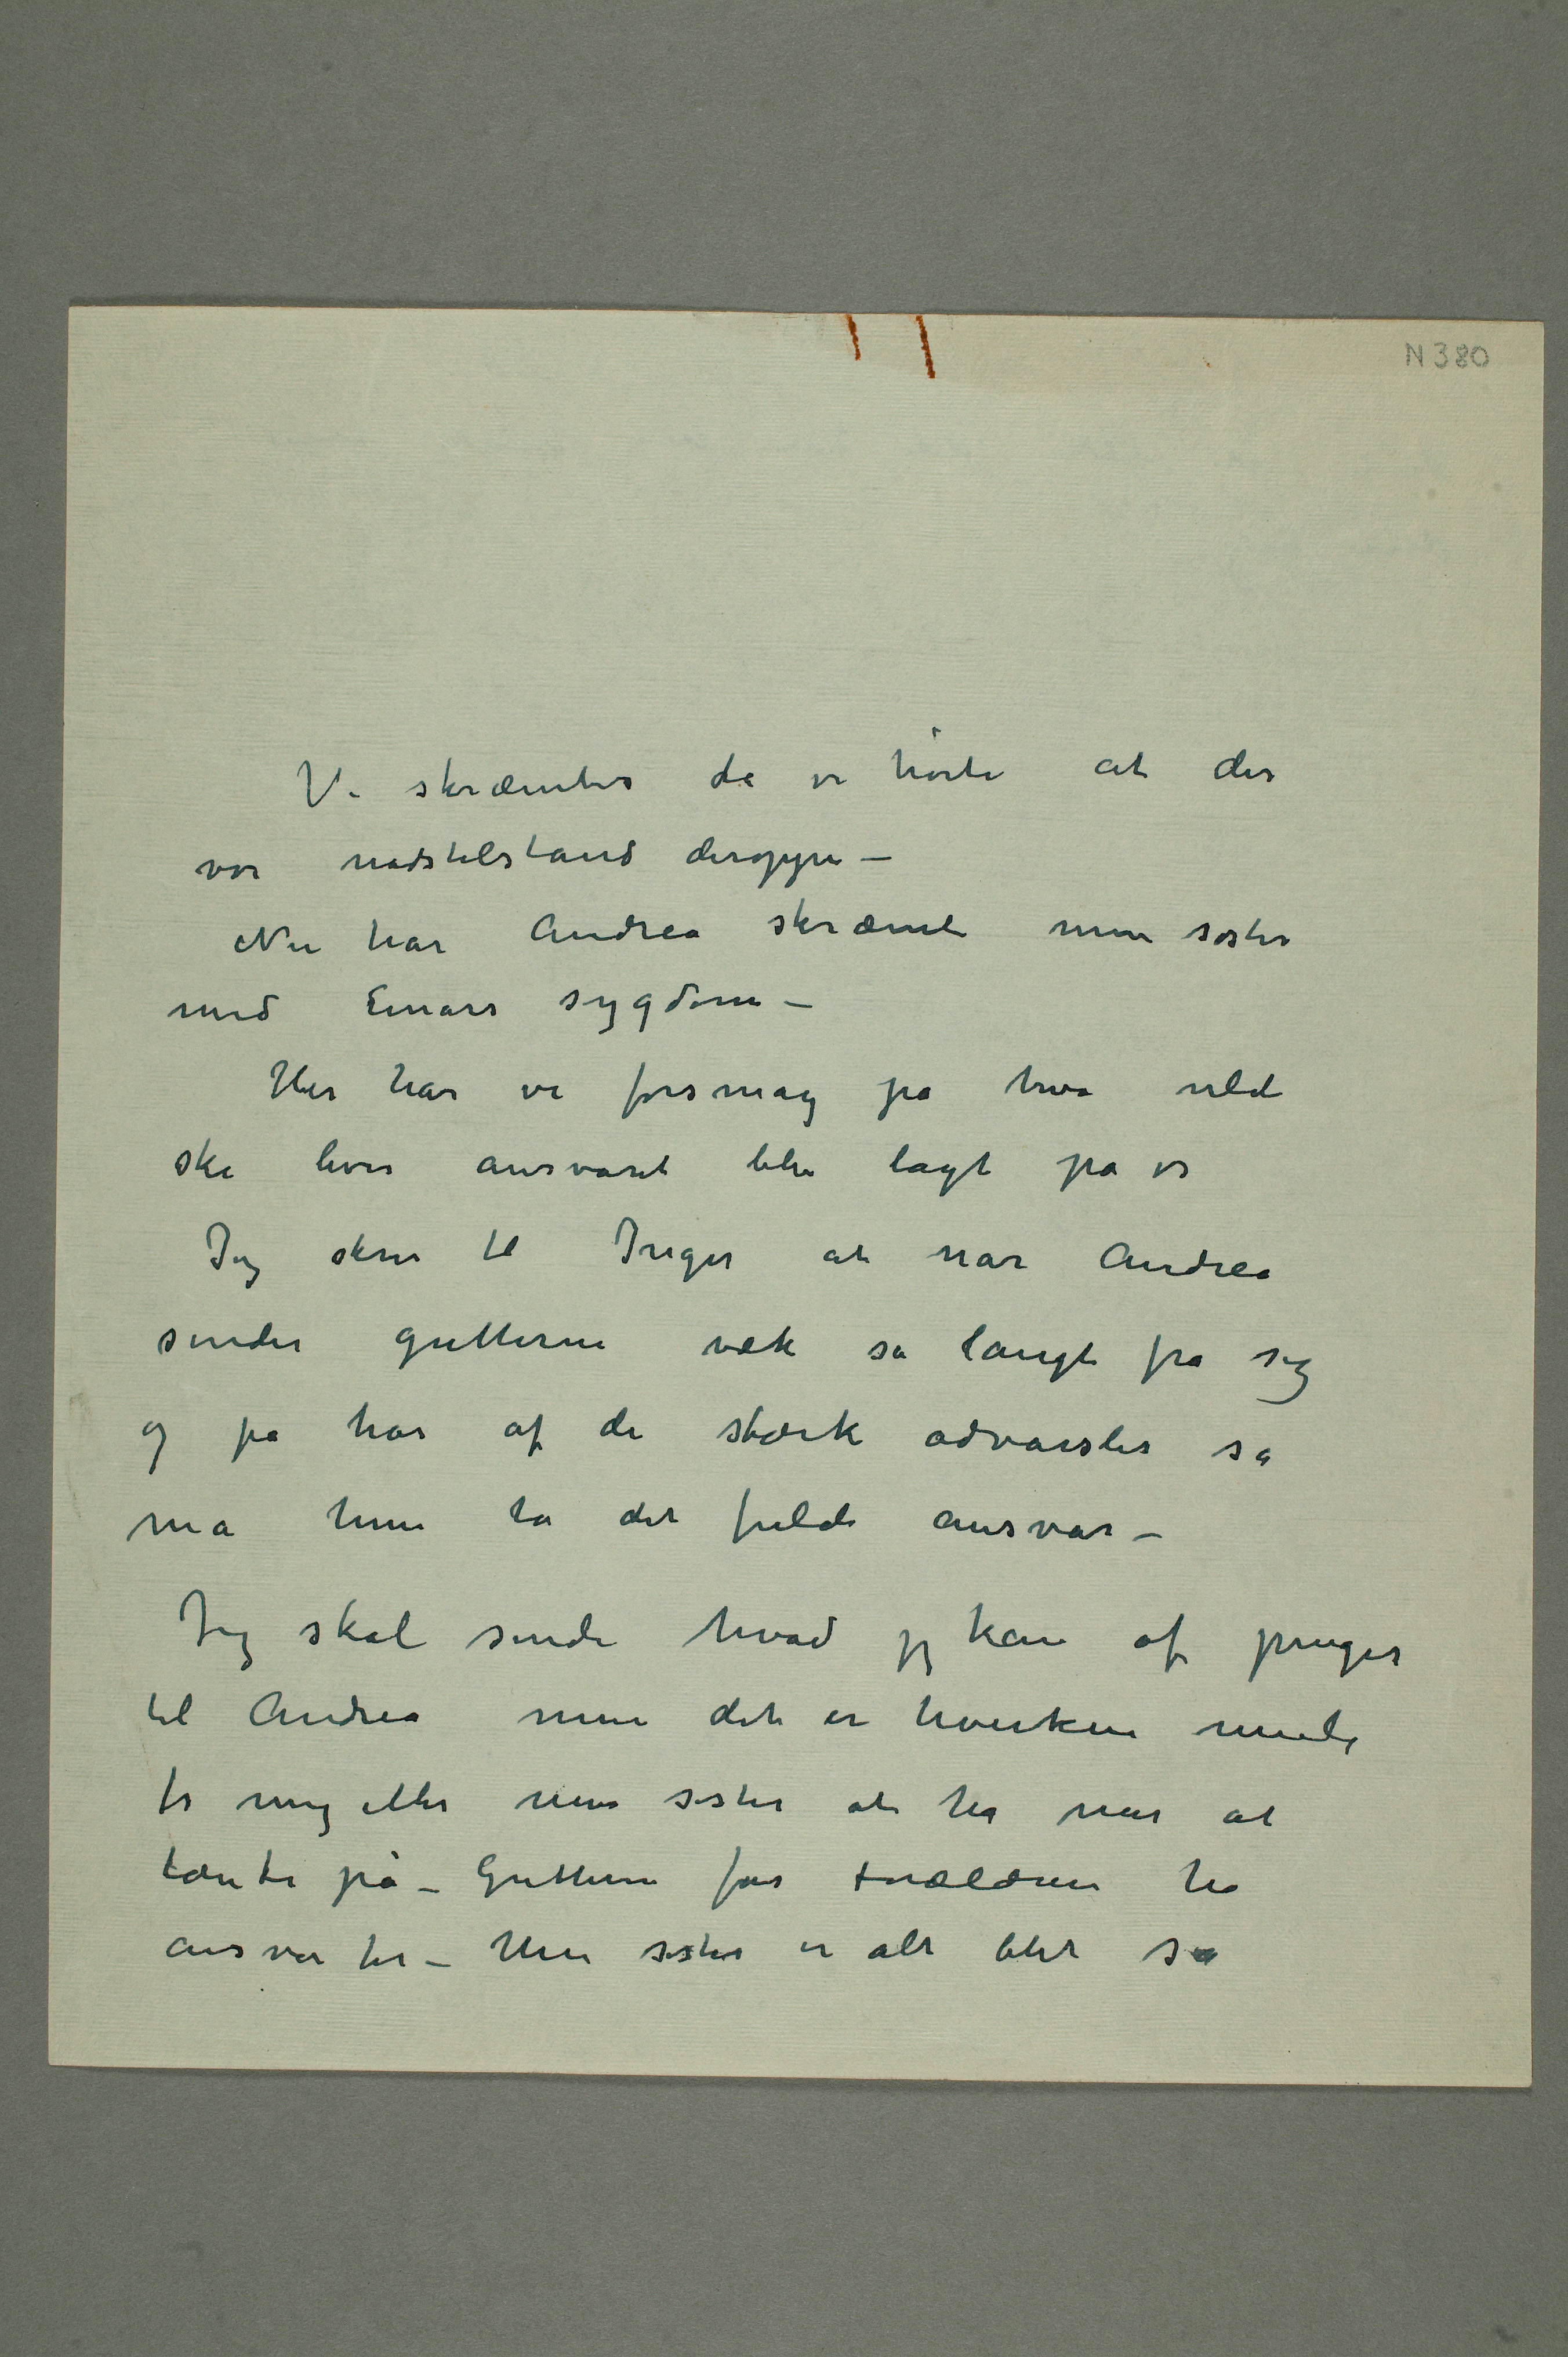 N 380
Vi skræmtes da vi hørte at der
var nødstilstand deroppe –
Nu har Andrea skræmt min søster
med Einars sygdom –
Her har vi forsmag på hva vild
ske hvis ansvaret ble lagt på os
Jeg skrev til Inger at når Andrea
sender gutterne væk så langt fra sig
og på har af de stærk advarsler så
må hun ta det fulde ansvar –
Jeg skal sende hvad jeg kan af penger
til Andrea men det er hverken mulig
for mig eller min søster at ha mer at
tænke på – Gutterne får forældrene ha
ansvar for – Min søster er alt blet så